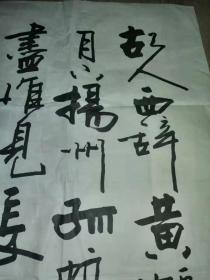 故人西辞黄
月下揚州孤
盡惟見長